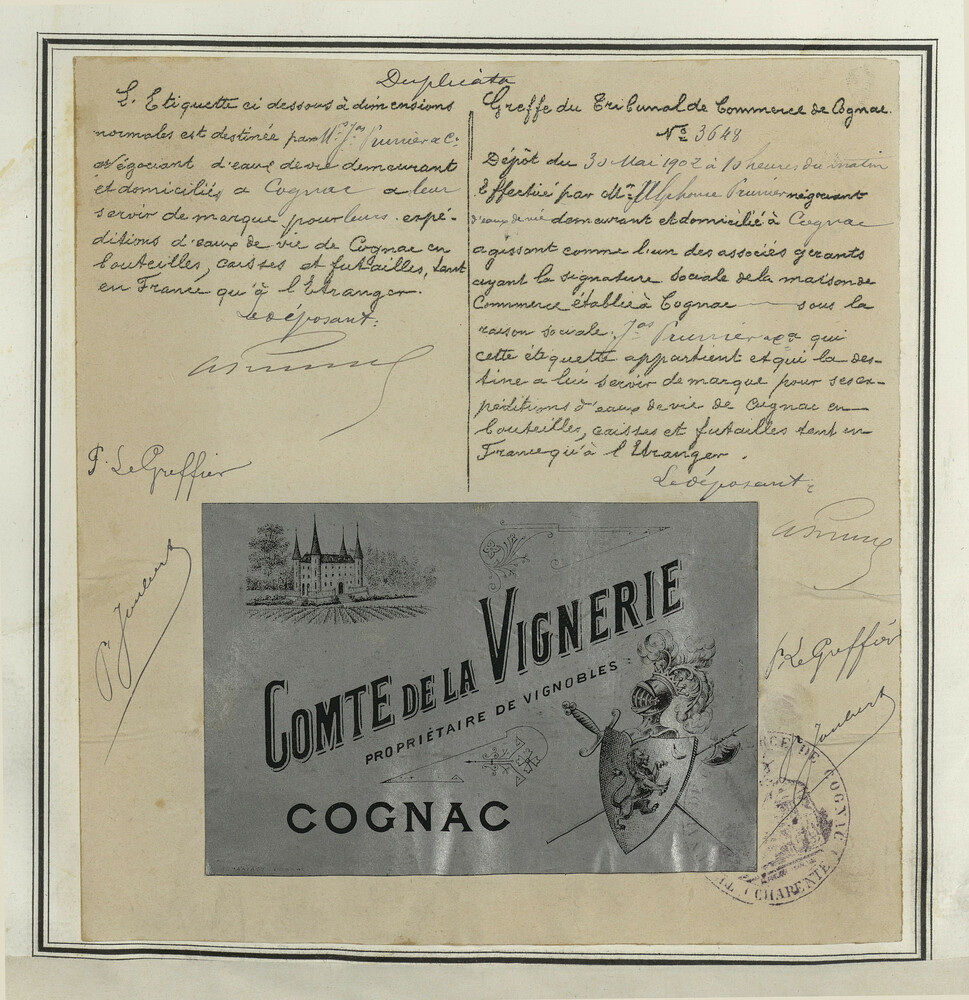 Duplicata
L'Etiquette ci dessous à dimensions
normales est destinée par Mrs Jas Prunier & Co
Négociant d'eaux de vie demeurant
et domiciliés a Cognac a leur
servir de marque pour leurs expé-
ditions d'eaux de vie de Cognac en
bouteilles, caisses et futailles, tant
en France qu'à l'Etranger.
Le déposant:
P. Le Greffier
Greffe du Tribunal de Commerce de Cognac.
No 3648
Dépôt du 30 Mai 1902 à 10 heures du matin
Effectué par Mr Alphonse Prunier négociant
d'eaux de vie demeurant et domicilié à Cognac
agissant comme l'un des associés gérants
ayant la signature sociale de la maison de
Commerce établie à Cognac sous la
raison sociale Jas Prunier & Co qui
cette étiquette appartient et qui la des-
tine a lui servir de marque pour ses ex-
péditions d'eaux de vie de Cognac en
bouteilles, caisses et futailles tant en
France qu'à l'Etranger.
Le déposant:
P. Le Greffier
COMTE DE LA VIGNERIE
PROPRIÉTAIRE DE VIGNOBLES
COGNAC
DE COGNAC
CHARENTE